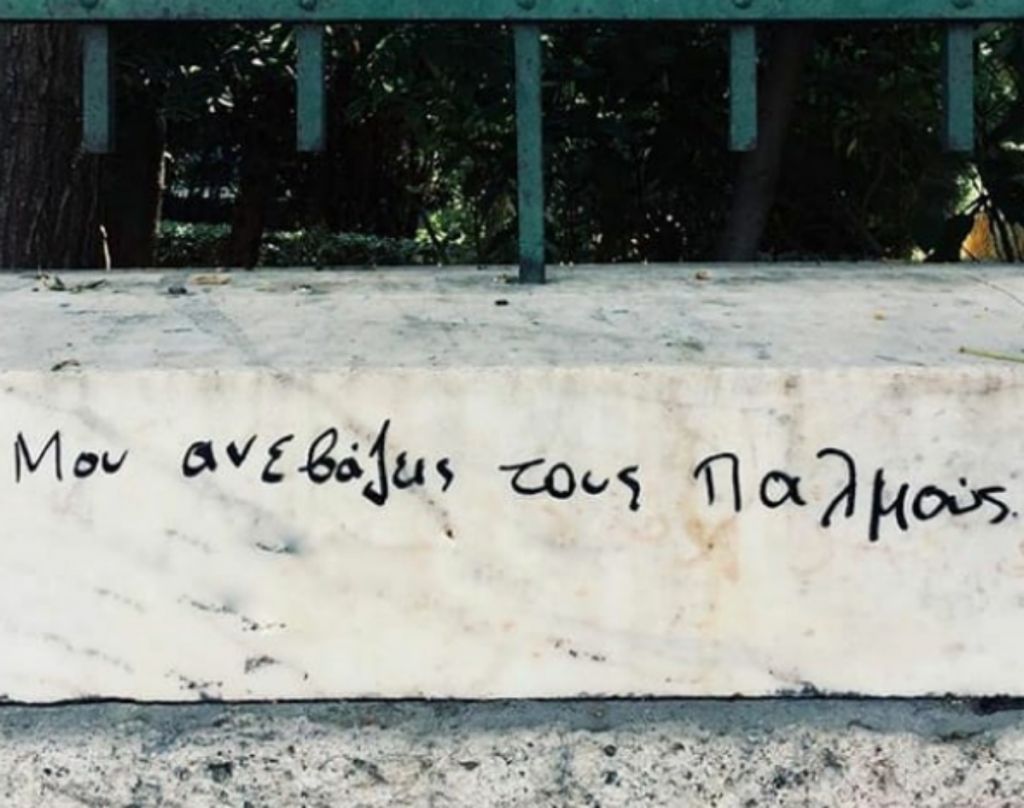 Μου ανεβάζεις τους Παλμούς.